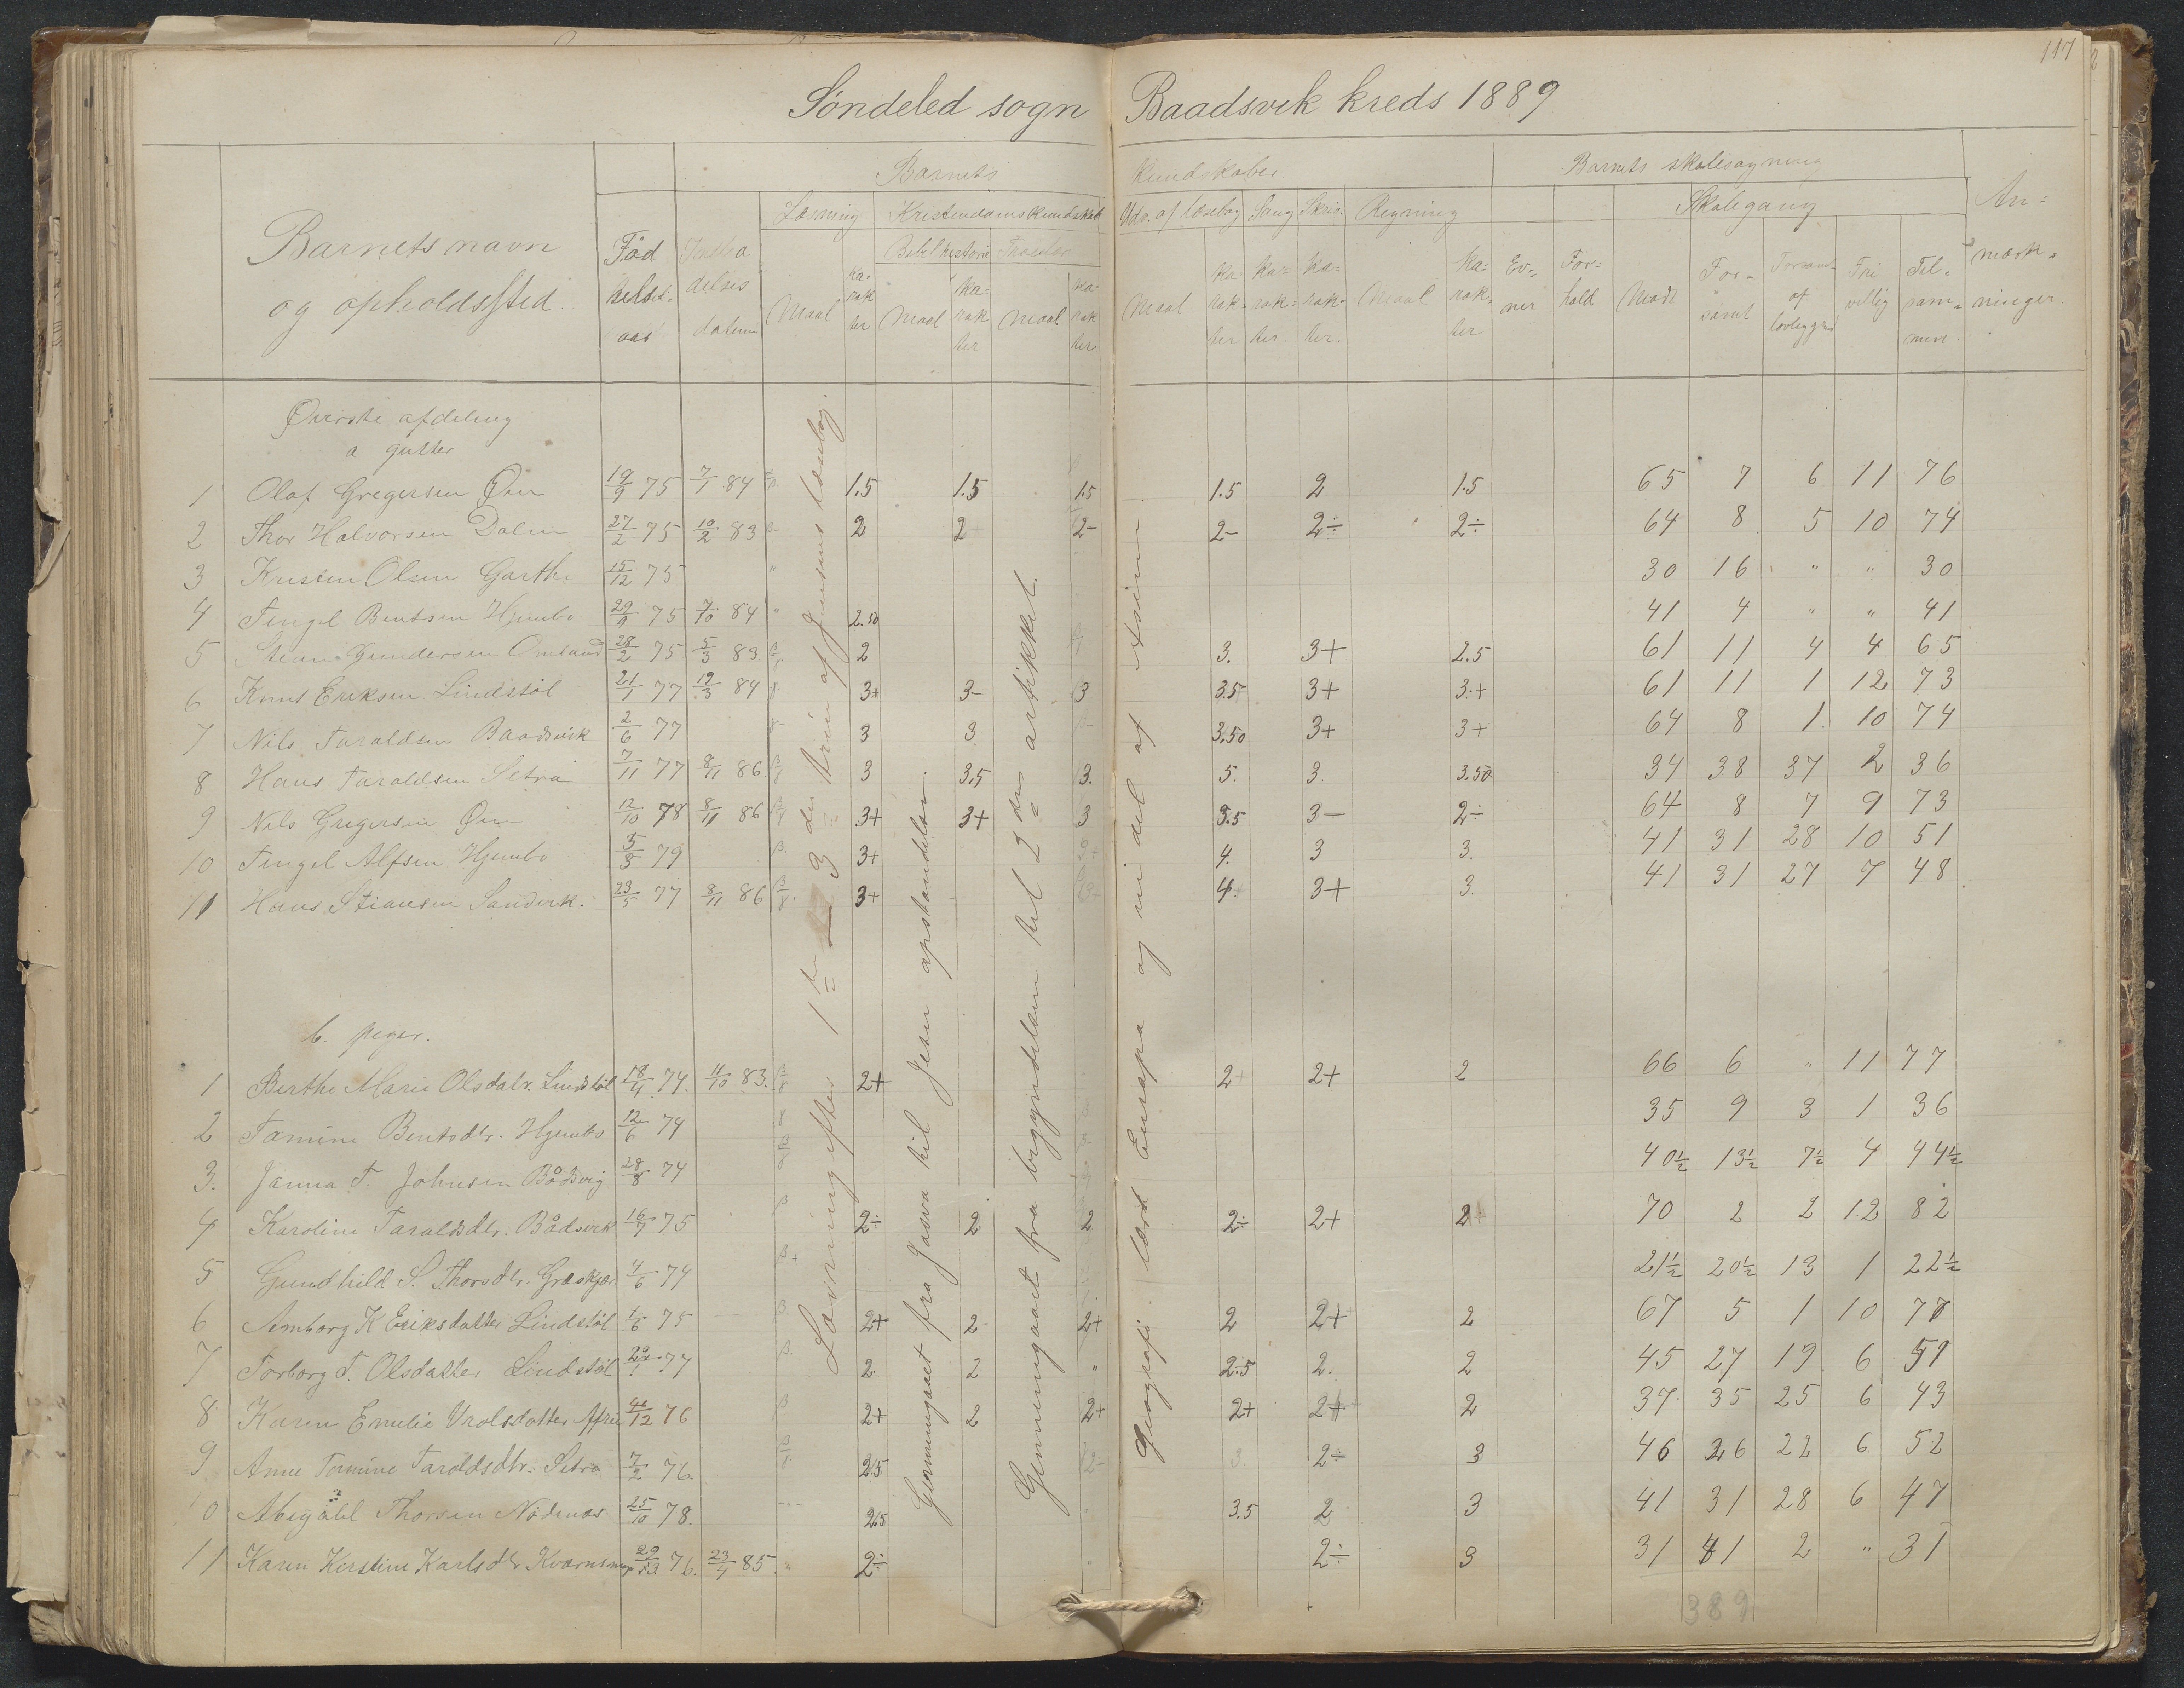 117
Søndeled sogn Baadsvik kreds 1889
Barnets kundskaber Barnets skolesøgning
Læsning Kristendomskundskab Udv. af læsebog Sang Skriv. Regning Skolegang An=
Barnets navn Fød Bibelhistorie Troeslære mærk=
og opholdssted helses aar datum Maal ka=rak ter Maal ka=rak ter Maal ka=rak ter Maal ka=rak=ter ka=rak=ter ka=rak=ter Maal ka=rak=ter Ev=ner For=hold Mødt For=sømt af Fri villig Til=sam=men ninger.
Øverste afdeling
a gutter
1 Olaf Gregersen Øen 19/9 75 7/1 84 1.5 1.5 1.5 1.5 2 1.5 65 7 6 11 76
2 Thor Halvorsen Dalen 27/2 75 10/2 83 2 2 2- 2- 2÷ 2÷ 64 8 5 10 74
3 Kristen Olsen Garthe 15/12 75 " 30 16 " " 30
4 Tengel Bentsen Hjembo 29/9 75 7/10 84 " 2.50 41 4 " " 41
5 Stian Gundersen Omland 28/2 75 5/3 83 2 3. 3+ 2.5 61 11 4 4 65
6 Knut Eriksen Lindstøl 21/1 77 19/3 84 3+ 3- 3 3.5 3+ 3.+ 61 11 1 12 73
7 Nils Taraldsen Baadsvik 2/6 77 3 3 3.50 3+ 3+ 64 8 1 10 74
8 Hans Taraldsen Setra 7/11 77 8/11 86 3 3.5 3. 5. 3. 3.50 34 38 37 2 36
9 Nils Gregersen Øen 12/10 78 8/11 86 3+ 3+ 3 3.5 3- 2÷ 64 8 7 9 73
10 Tengel Alfsen Hjembo 5/3 79 3+ 4. 3 3. 41 31 28 10 51
11 Hans Stiansen Sandvik. 23/5 77 8/11 86 3+ 4. 3+ 3. 41 31 27 7 48
b. piger.
1 Berthe Marie Olsdatr. Lindstøl 18/4 74. 11/10 83. 2+ 2 2+ 2 66 6 " 11 77
2 Tamine Bentsdtr. Hjembo 12/6 74 35 9 3 1 36
3. Janna T. Johnsen Bådsvig 28/8 74 40½ 13½ 7½ 4 44½
4 Karoline Taraldsdtr. Bådsvik 16/7 75 2÷ 2 2 2÷ 2+ 2 70 2 2 12 82
5 Gundhild S. Thorsdtr. Græskjær 4/6 74 21½ 20½ 13 1 22½
6 Amborg K Eriksdatter Lindstøl 1/6 75 2+ 2 2+ 2 2+ 2 67 5 1 10 77
7 Torborg T. Olsdatter Lindstøl 77 2 2 " 2.5 2. 2 45 27 19 6 51
8 Karen Emilie 76 2+ 2 2+ 2+ 2+ 2 37 35 25 6 43
9 Anne Tomine Taroldsdtr. Setra 7/2 76. 2.5 2- 3. 2÷ 3 46 26 22 6 52
10 Abigael Thorsen Nødenæs 25/10 78. 2.5 3.5 2 3 41 31 28 6 47
11 Karen Kirstine Karlsdtr 76. 23/4 85. " 2÷ 2÷ 3 31 41 2 " 31
389
Læsning efter 1ste 3die trin af Jensens læsebog.
Gjennemgaaet fra Josva til Jesu opstandelse.
Gjennemgaaet fra begyndelsen til 2den artikkel.
Geografi. læst Europa og en del af Asien.